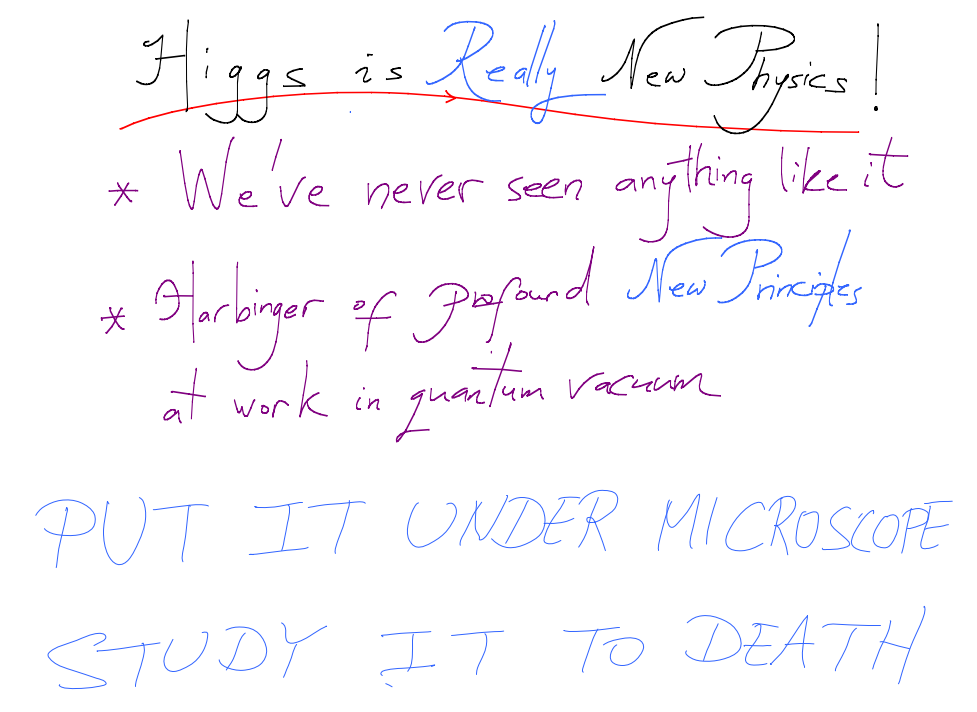 Higgs is Really New Physics!
* We've never seen anything like it
* Harbinger of profound New Principles
at work in quantum vacuum
PUT IT UNDER MICROSCOPE
STUDY IT TO DEATH